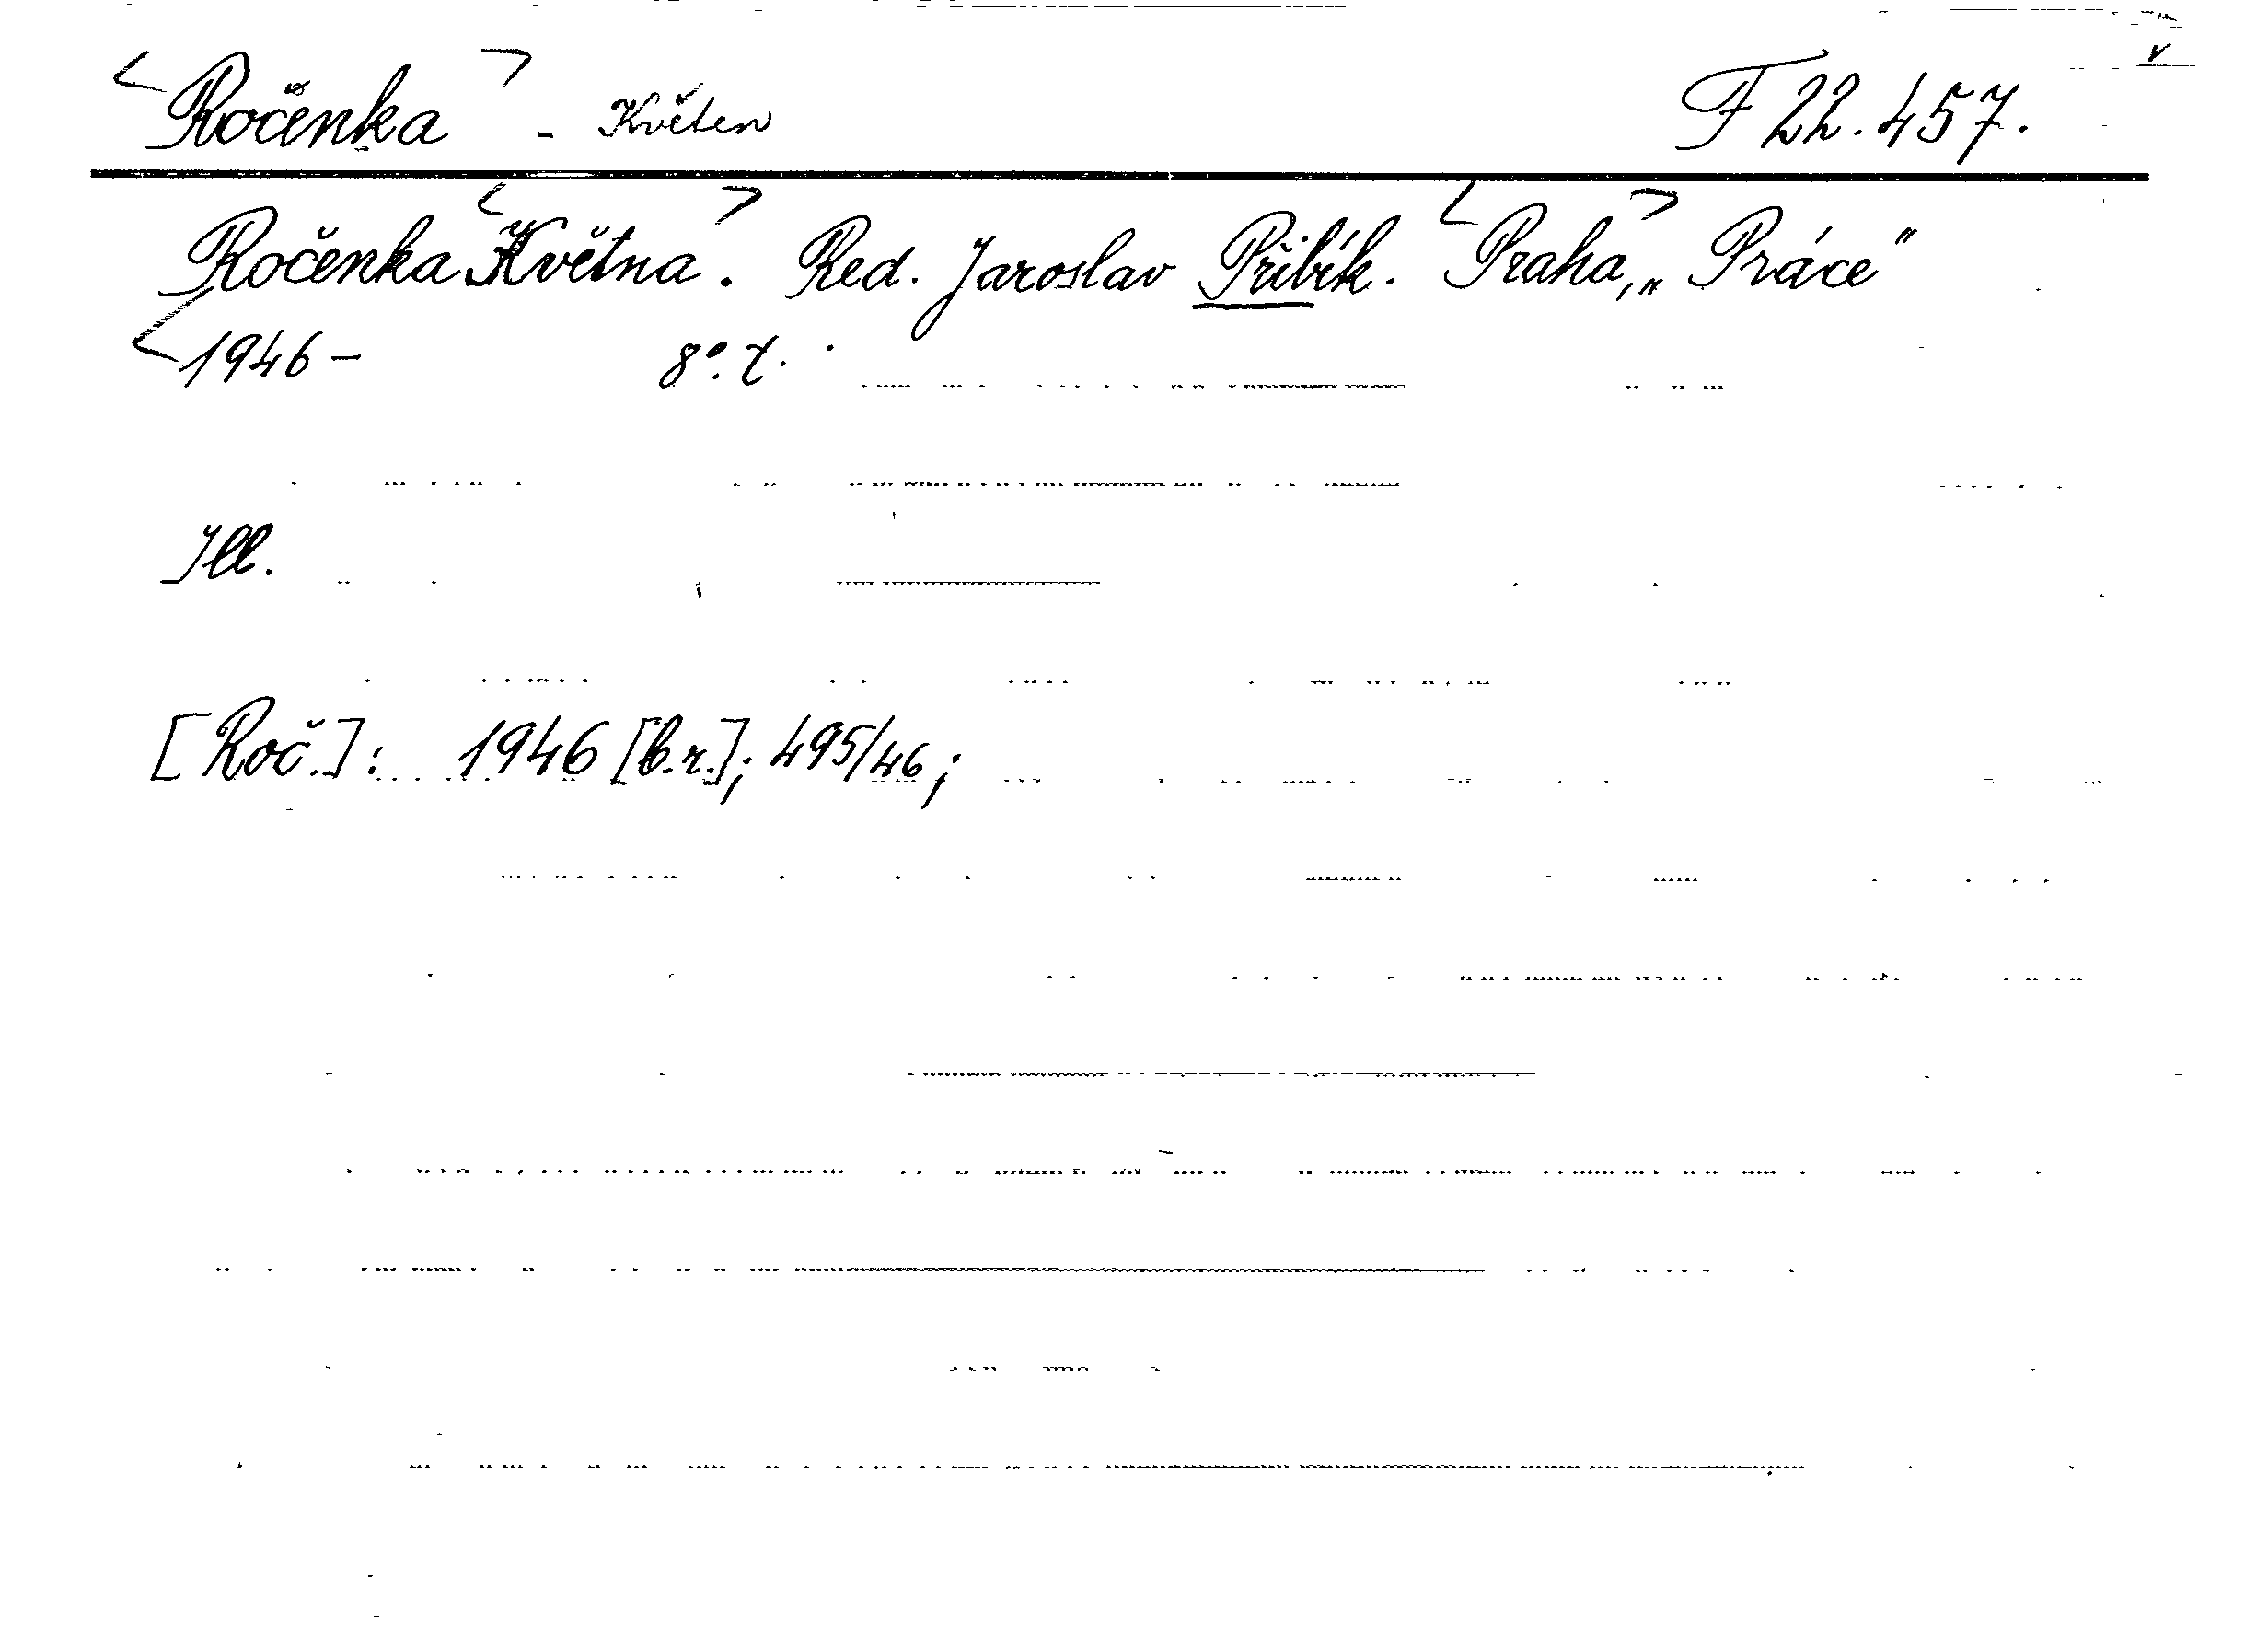 <Ročenka> - Květen F 22.457.
Ročenka <Května>. Red. Jaroslav Přibík. <Praha>, „Práce"
<1946- 8°. t.
Ill.
[Roč.]: 1946 [b.r.]; 495/46;